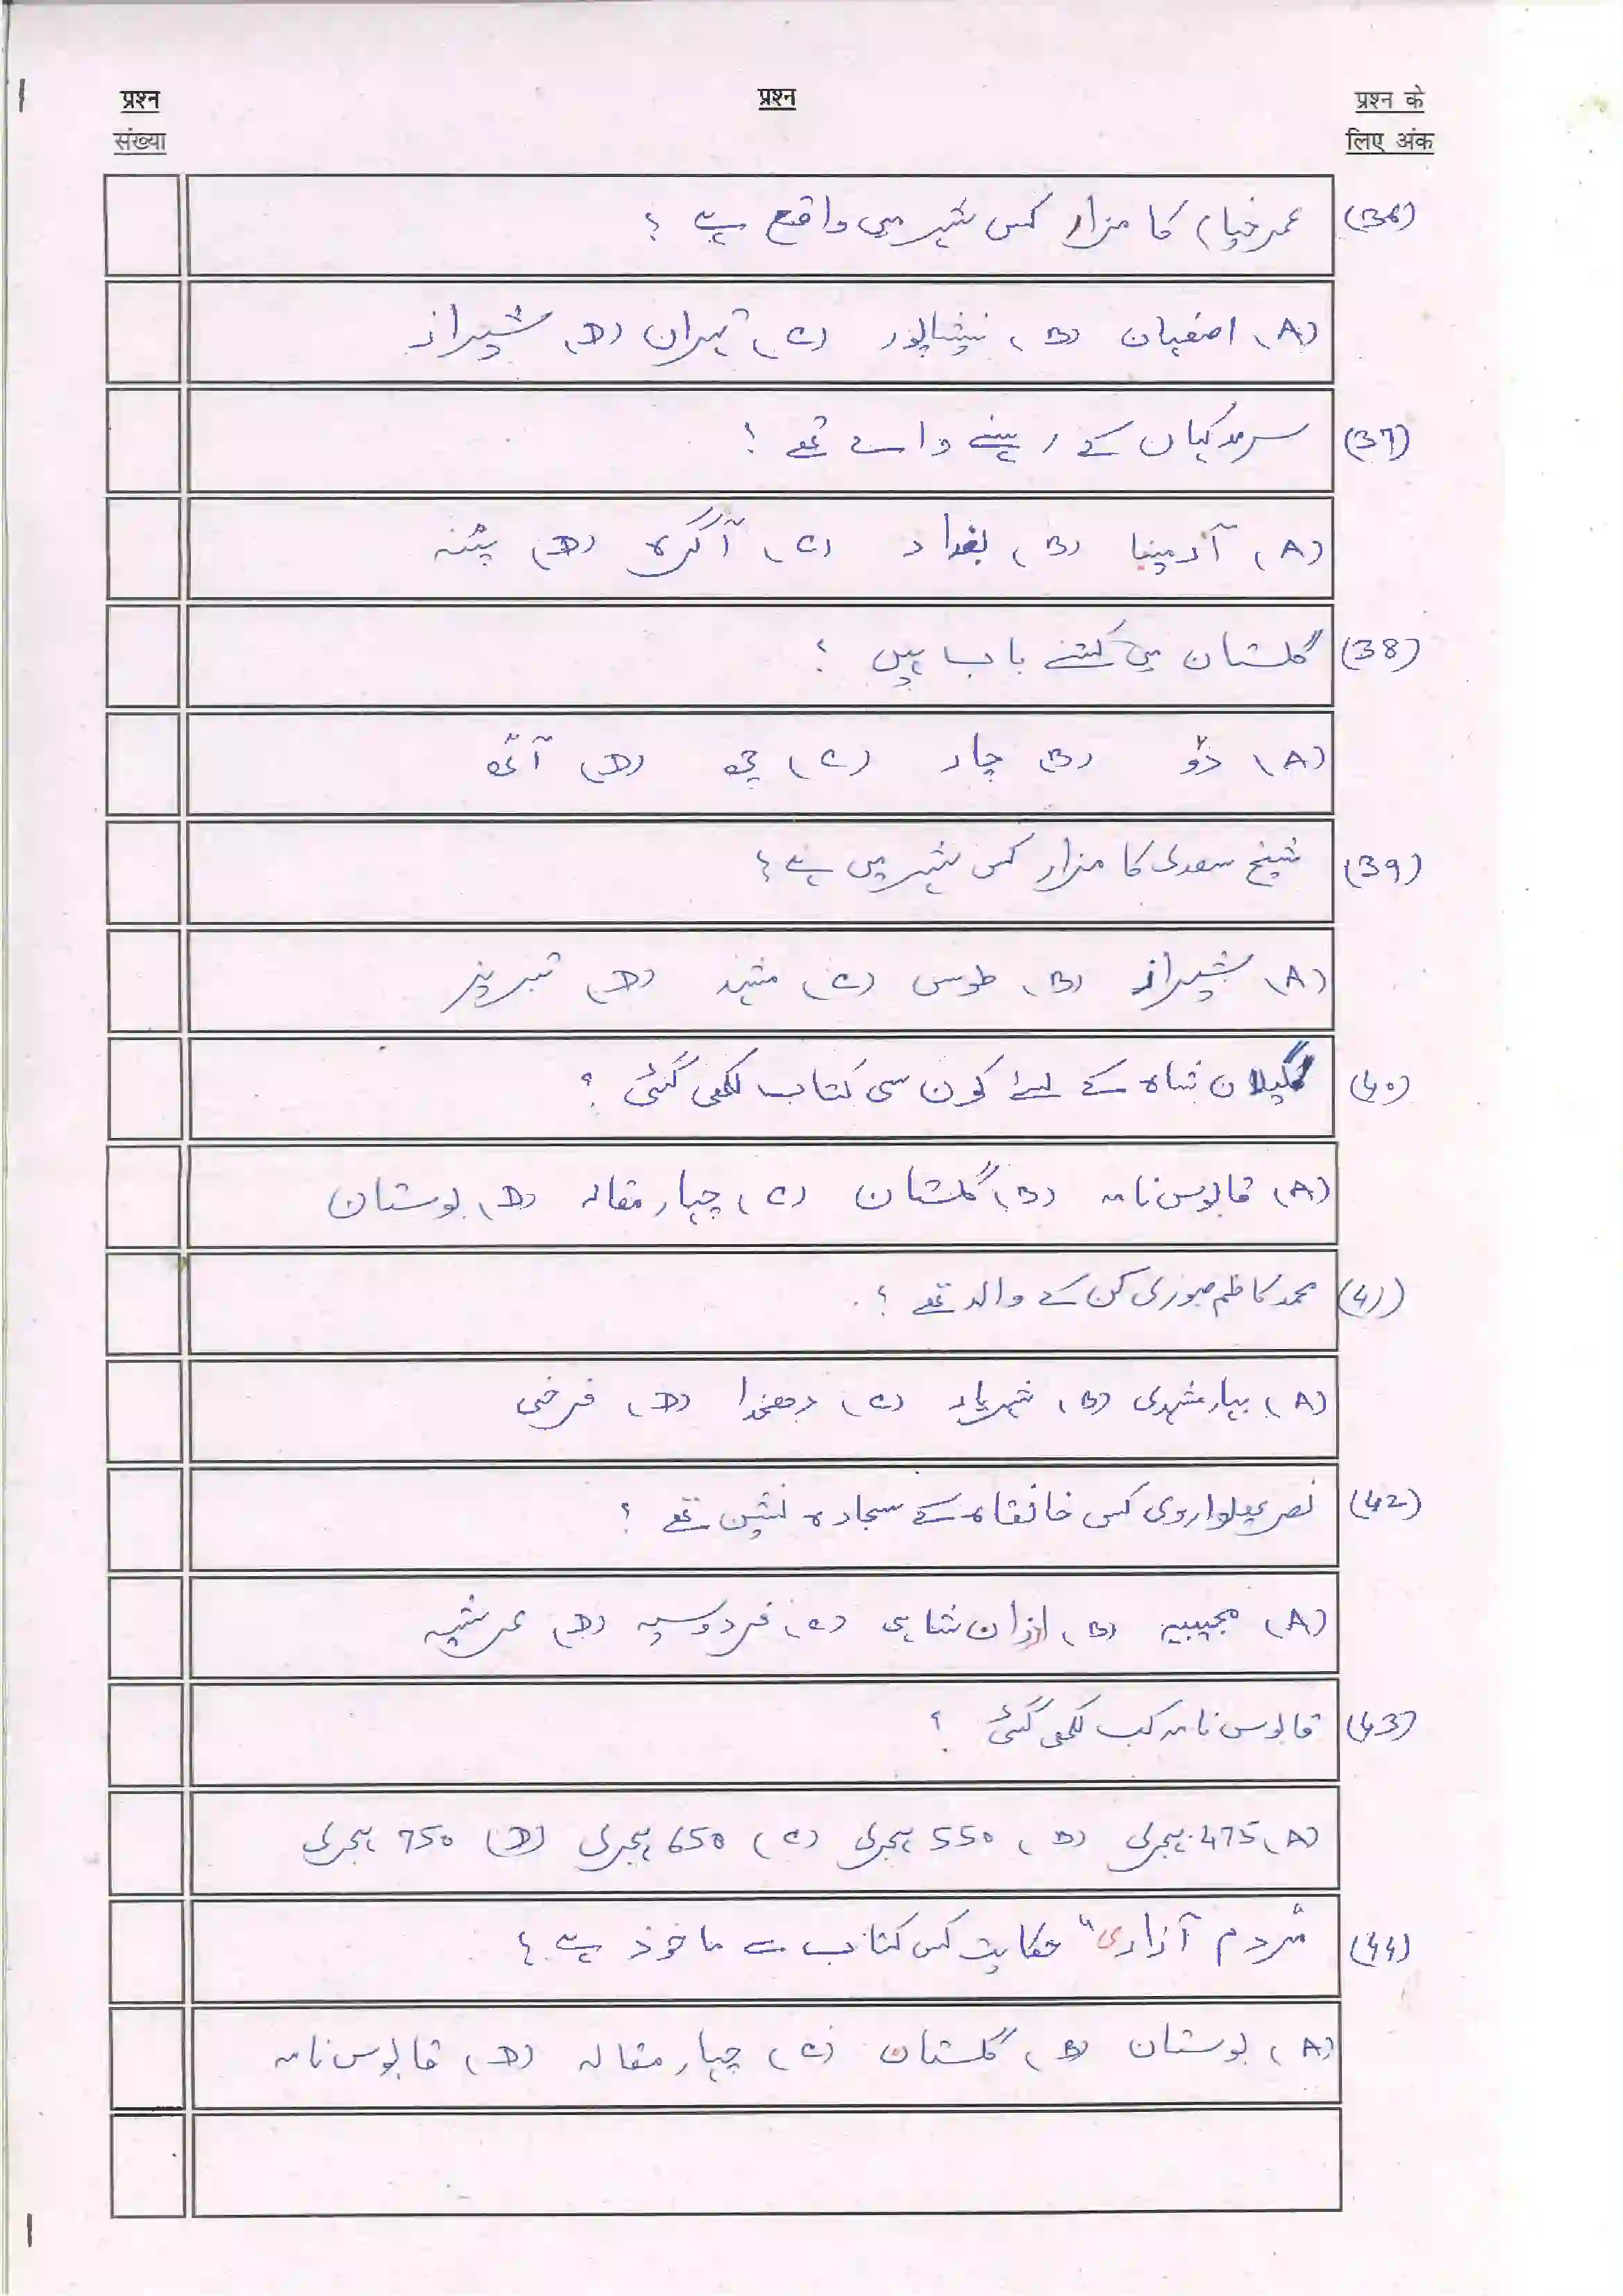 प्रश्न संख्या
प्रश्न
प्रश्न के लिए अंक
(36) عمر خیام کا مزار کس شہر میں واقع ہے ؟
(A) اصفہان (B) نیشاپور (C) تہران (D) شیراز
(37) سرمد کہاں کے رہنے والے تھے ؟
(A) آرمینیا (B) بغداد (C) آگرہ (D) پٹنہ
(38) گلستان میں کتنے باب ہیں ؟
(A) دو (B) چار (C) چھ (D) آٹھ
(39) شیخ سعدی کا مزار کس شہر میں ہے ؟
(A) شیراز (B) طوس (C) مشہد (D) تبریز
(40) گیلان شاہ کے لیے کون سی کتاب لکھی گئی ؟
(A) قابوس نامہ (B) گلستان (C) چہار مقالہ (D) بوستان
(41) محمد کاظم صبوری کن کے والد تھے ؟
(A) بہار مشہدی (B) شہریار (C) دھخدا (D) فرخی
(42) نصر پھلواروی کس خانقاہ کے سجادہ نشیں تھے ؟
(A) مجیبیہ (B) ارزان شاہی (C) فردوسیہ (D) عرشیہ
(43) قابوس نامہ کب لکھی گئی ؟
(A) 475 ہجری (B) 550 ہجری (C) 650 ہجری (D) 750 ہجری
(44) "مردم آزاری" حکایت کس کتاب سے ماخوذ ہے ؟
(A) بوستان (B) گلستان (C) چہار مقالہ (D) قابوس نامہ